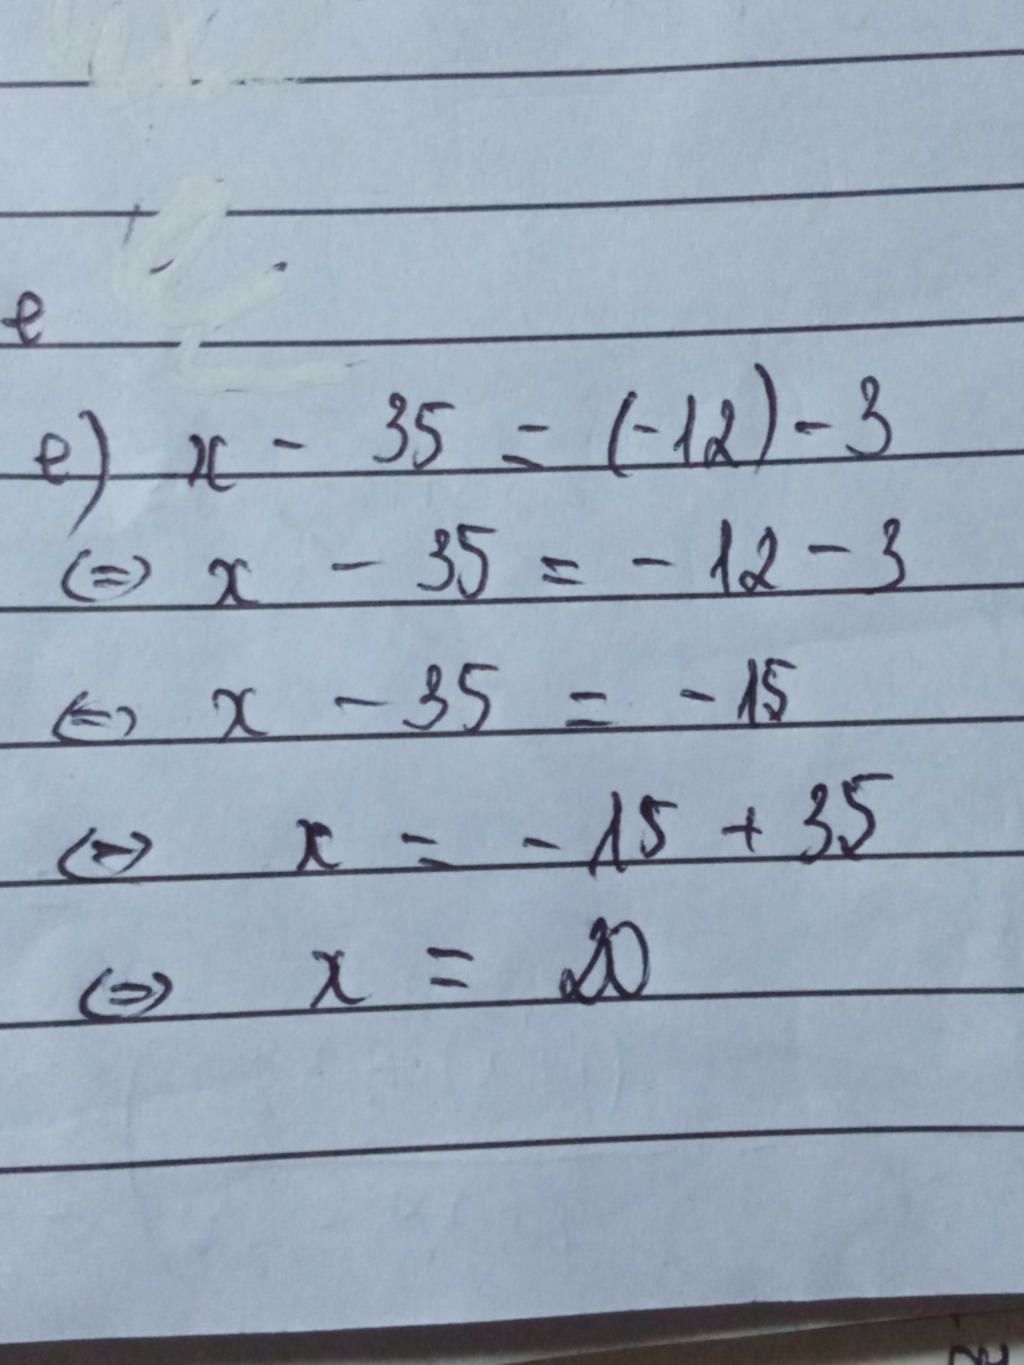 e
e) x - 35 = (-12) - 3
⇔ x - 35 = - 12 - 3
⇔ x - 35 = - 15
⇔ x = - 15 + 35
⇔ x = 20